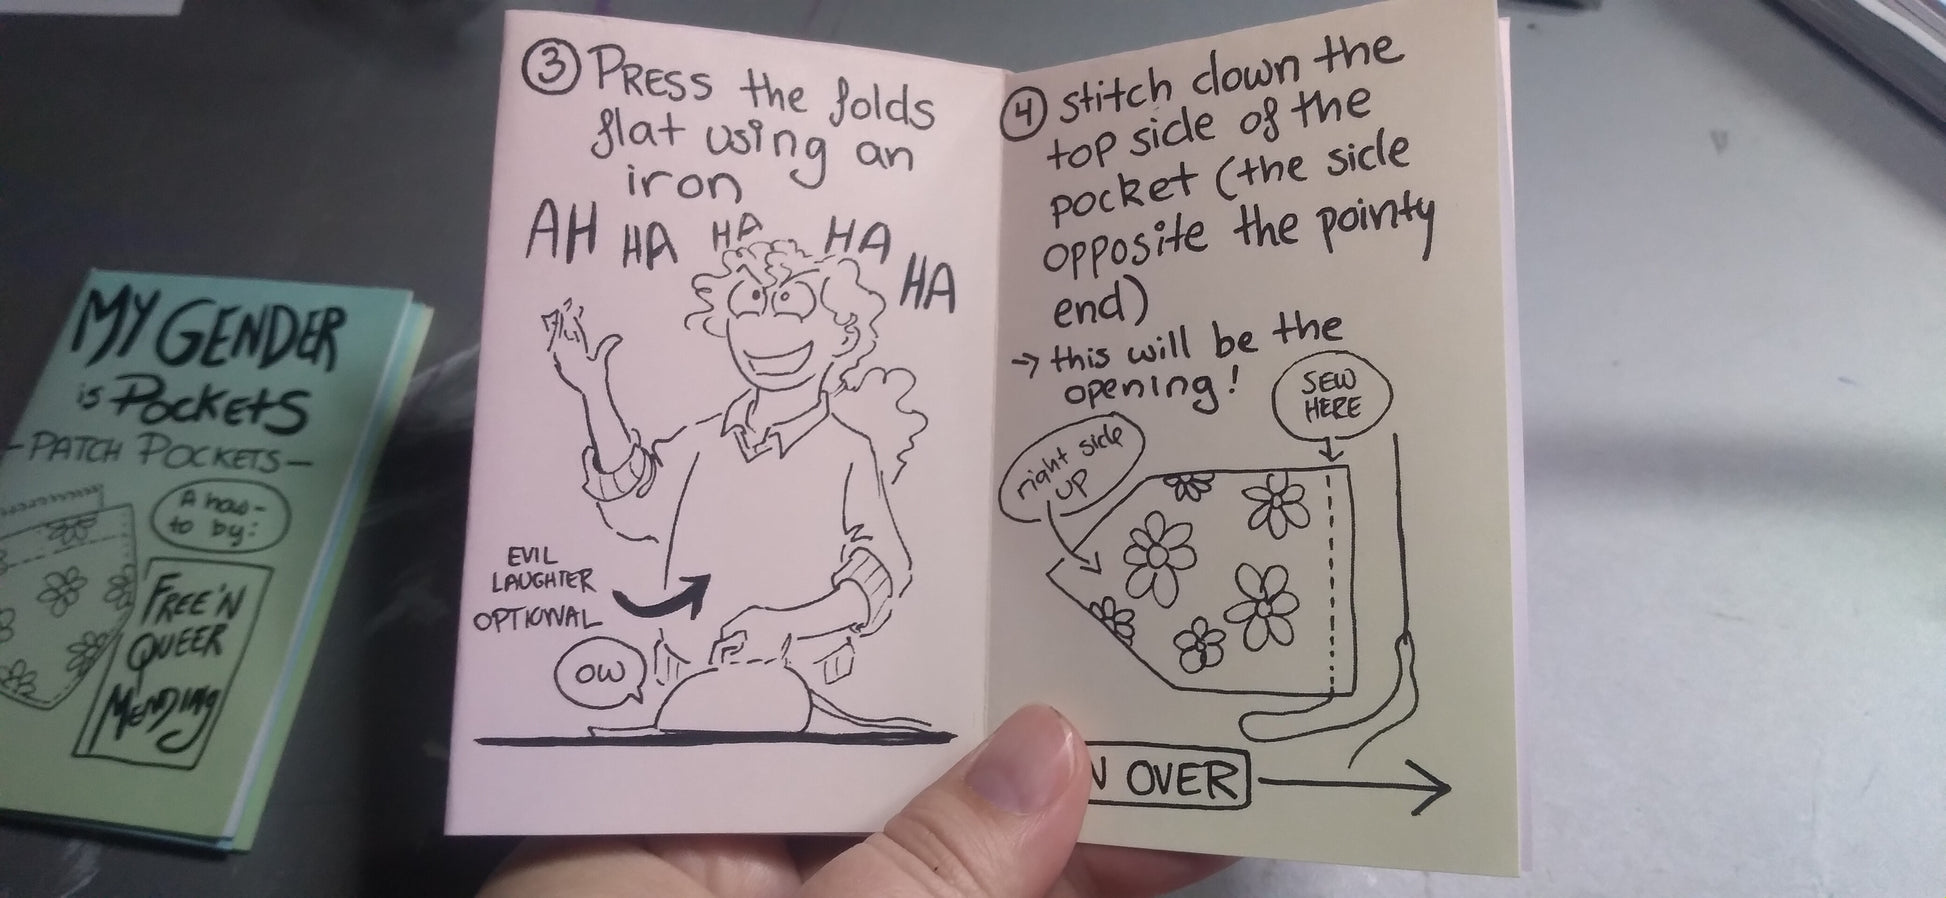 MY GENDER
is POCKETS
-PATCH POCKETS-
A how-
to by:
FREE'N
QUEER
MENDING
③ PRESS the folds
flat using an
iron
AH HA HA HA HA
EVIL
LAUGHTER
OPTIONAL
OW
④ stitch down the
top side of the
pocket (the side
opposite the pointy
end)
→ this will be the
opening!
SEW
HERE
right side
UP
OVER